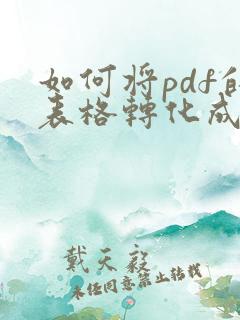 如何将pdf的
表格轉化成
戴天毅
未经同意禁止转载